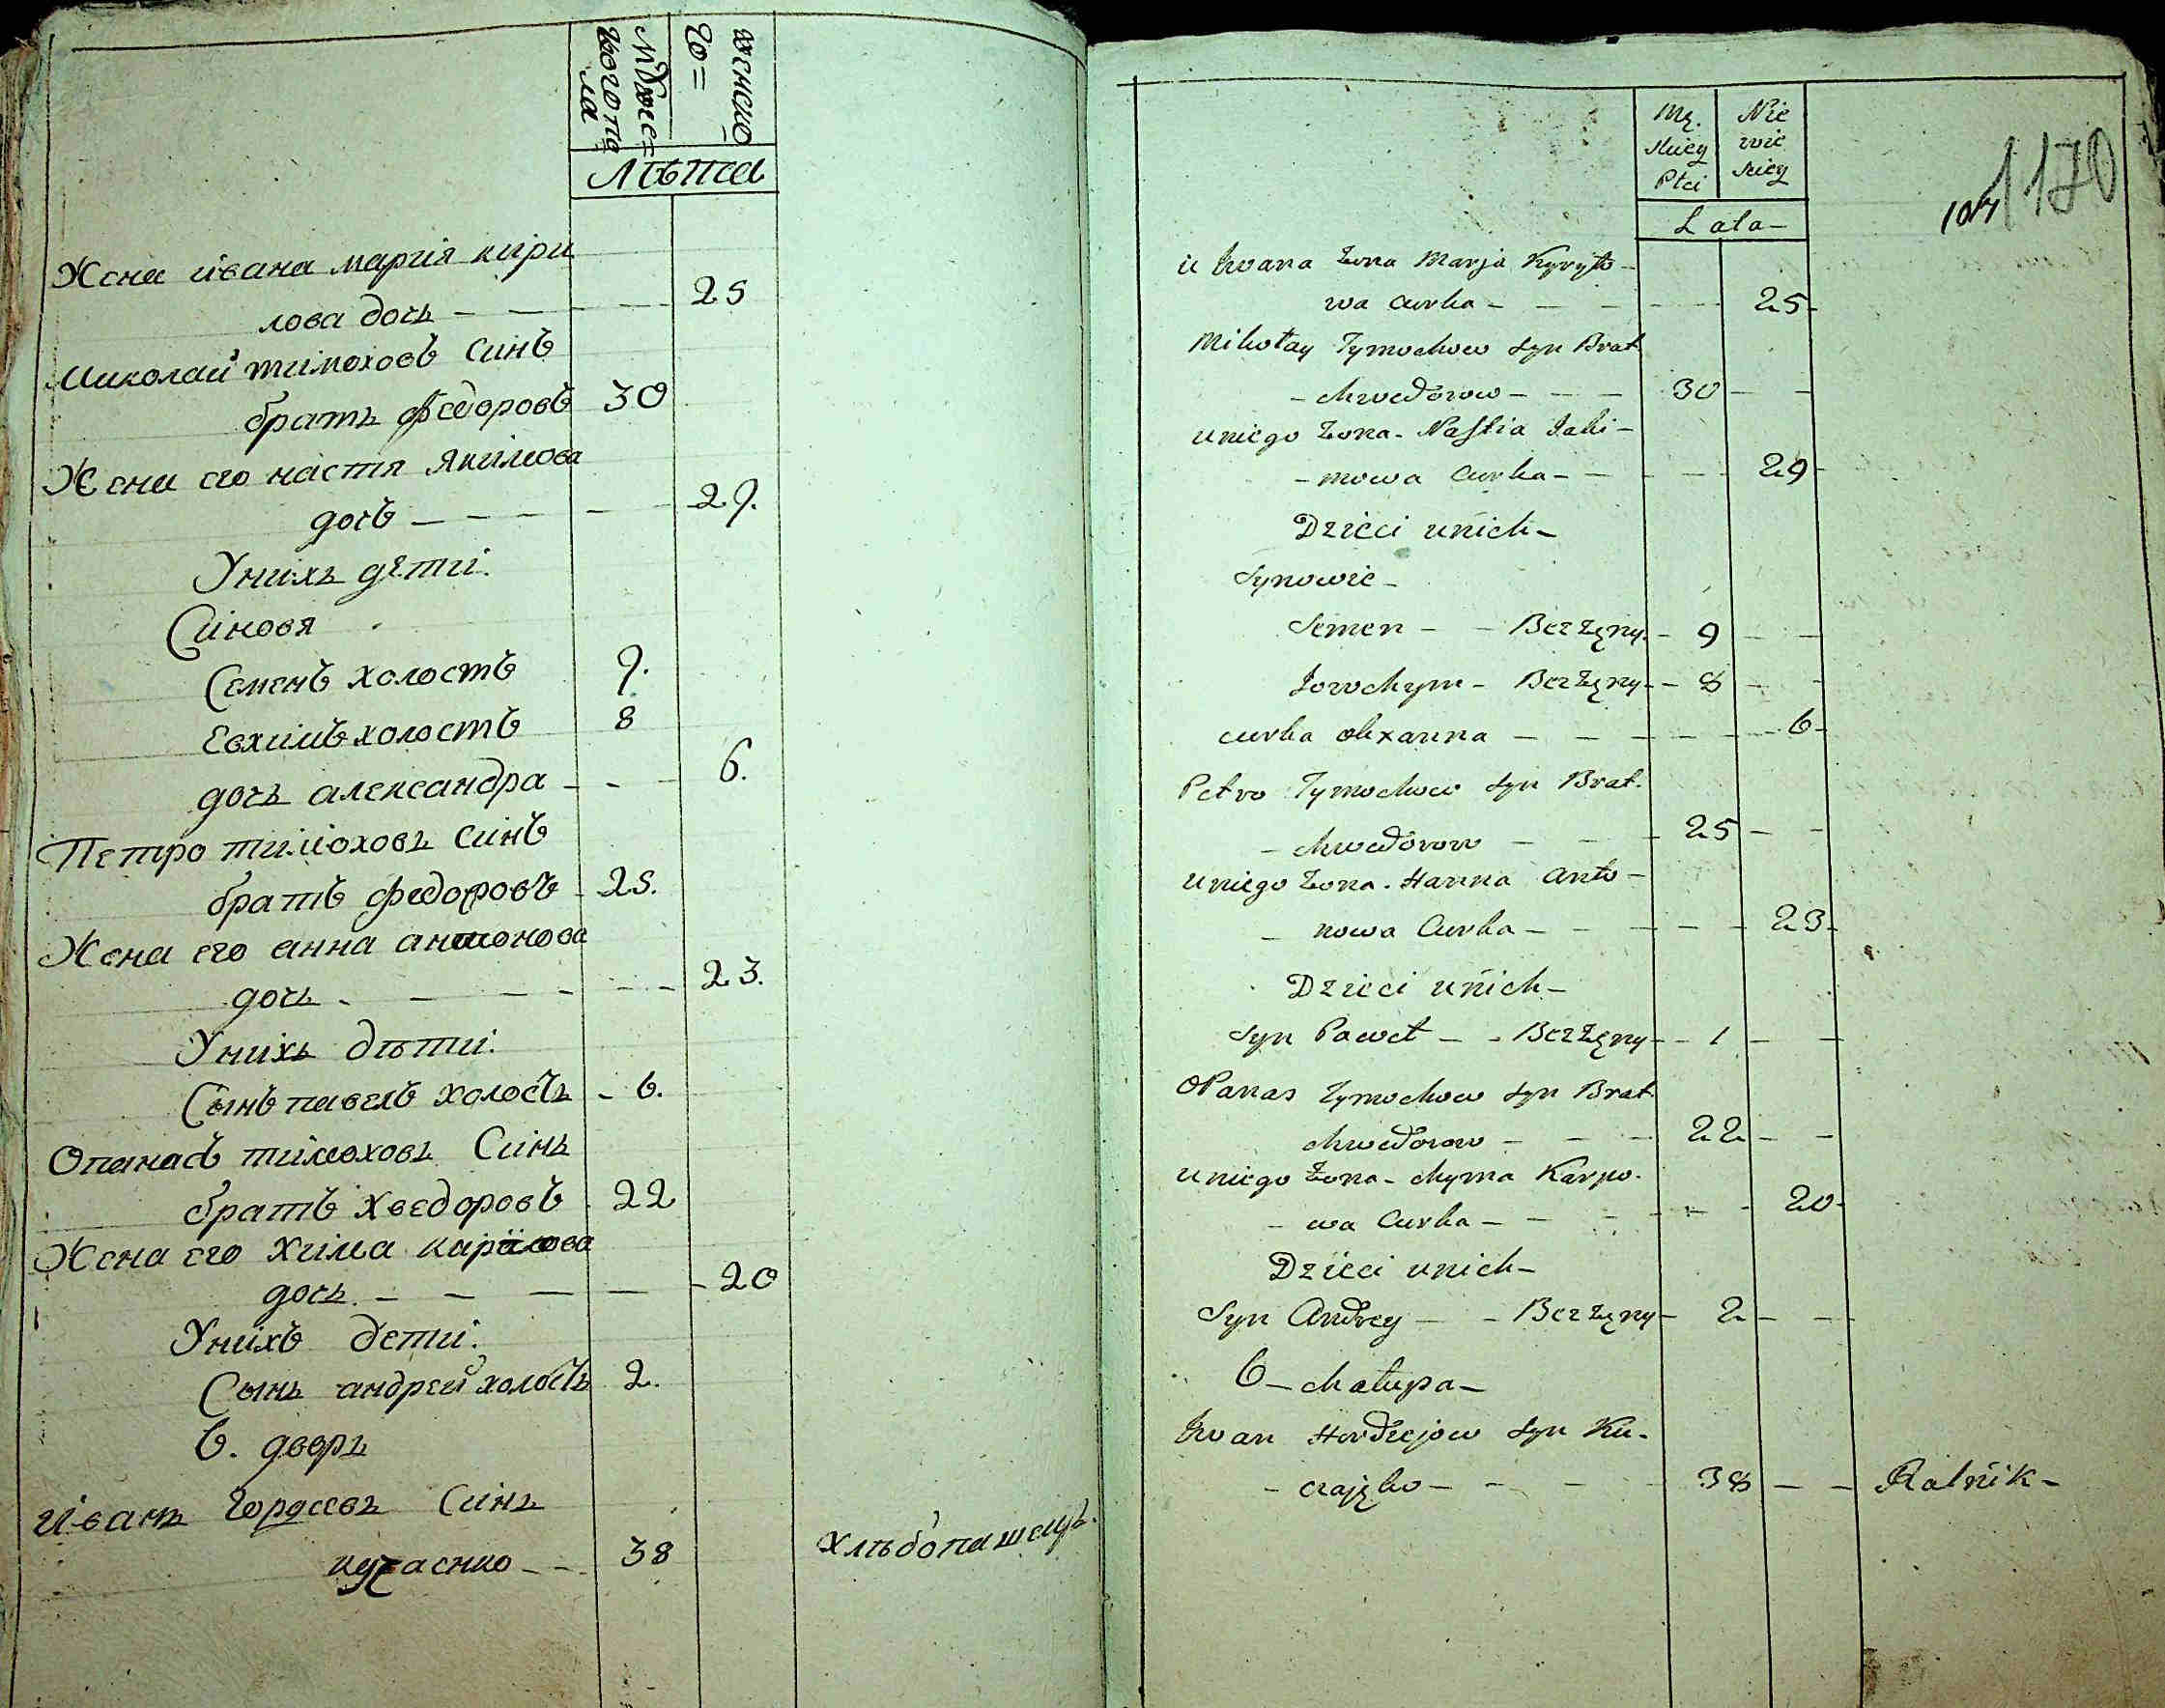 Мужес=
кого по
ла
женско
го=
Лѣта
Жена ивана мария кири
лова дочь — — — 25
Николай тимоховъ Синъ
братъ Федоровъ 30
Жена его настя якимова
дочь — — — — — 29.
Унихъ дети.
Синовя
Семенъ холостъ 9.
Евхимъ холостъ 8
дочь александра — - — 6.
Петро тимоховъ Синъ
братъ федоровъ - 25.
Жена его анна антонова
дочь - — - - - - 23.
Унихъ дѣти.
Сынъ павелъ холостъ - 6.
Опанасъ тимоховъ Синъ
братъ хведоровъ 22
Жена его хима карпова
дочь — — — — - 20
Унихъ дети.
Сынъ андрей холостъ 2.
6. дворъ
Иванъ Гордеевъ Синъ
кучаенко - - - 38 хлѣбопашецъ.
Mę.
skiey
Płci
Nie
wie
skiey
Lata-
107 170
u Iwana Żona Marja Kyryło-
wa Curka - - - - - 25-
Mikołay Tymochow Syn Brat
- chwedorow - - - 30 - -
u niego Żona - Nastia Jaki-
- mowa Curka - - - - 29-
Dzieci unich-
Synowie-
Semen - - Bezżęny - 9 - -
Jowchym - Bezżęny - - 8 - -
curka olexanna - - - - - 6-
Petro Tymochow Syn Brat.
- chwedorow - - - 25 - -
u niego Żona - Hanna Anto-
- nowa Curka - - - - - 23-
Dzieci unich-
Syn Paweł - - Bezżęny - - 1 - -
OPanas Tymochow Syn Brat
chwedorow - - - 22 - -
u niego Żona - chyma Karpo-
- wa Curka - - - - - 20-
Dzieci unich-
Syn Andrey - - Bezżęny - 2 - -
6 - chałupa -
Iwan Hordiejow Syn Ku-
- czajęko - - - - 38 - - Ralnik-